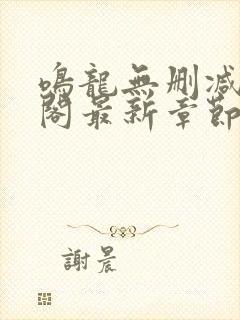 鳴龍無删減
閣最新章節
謝晨